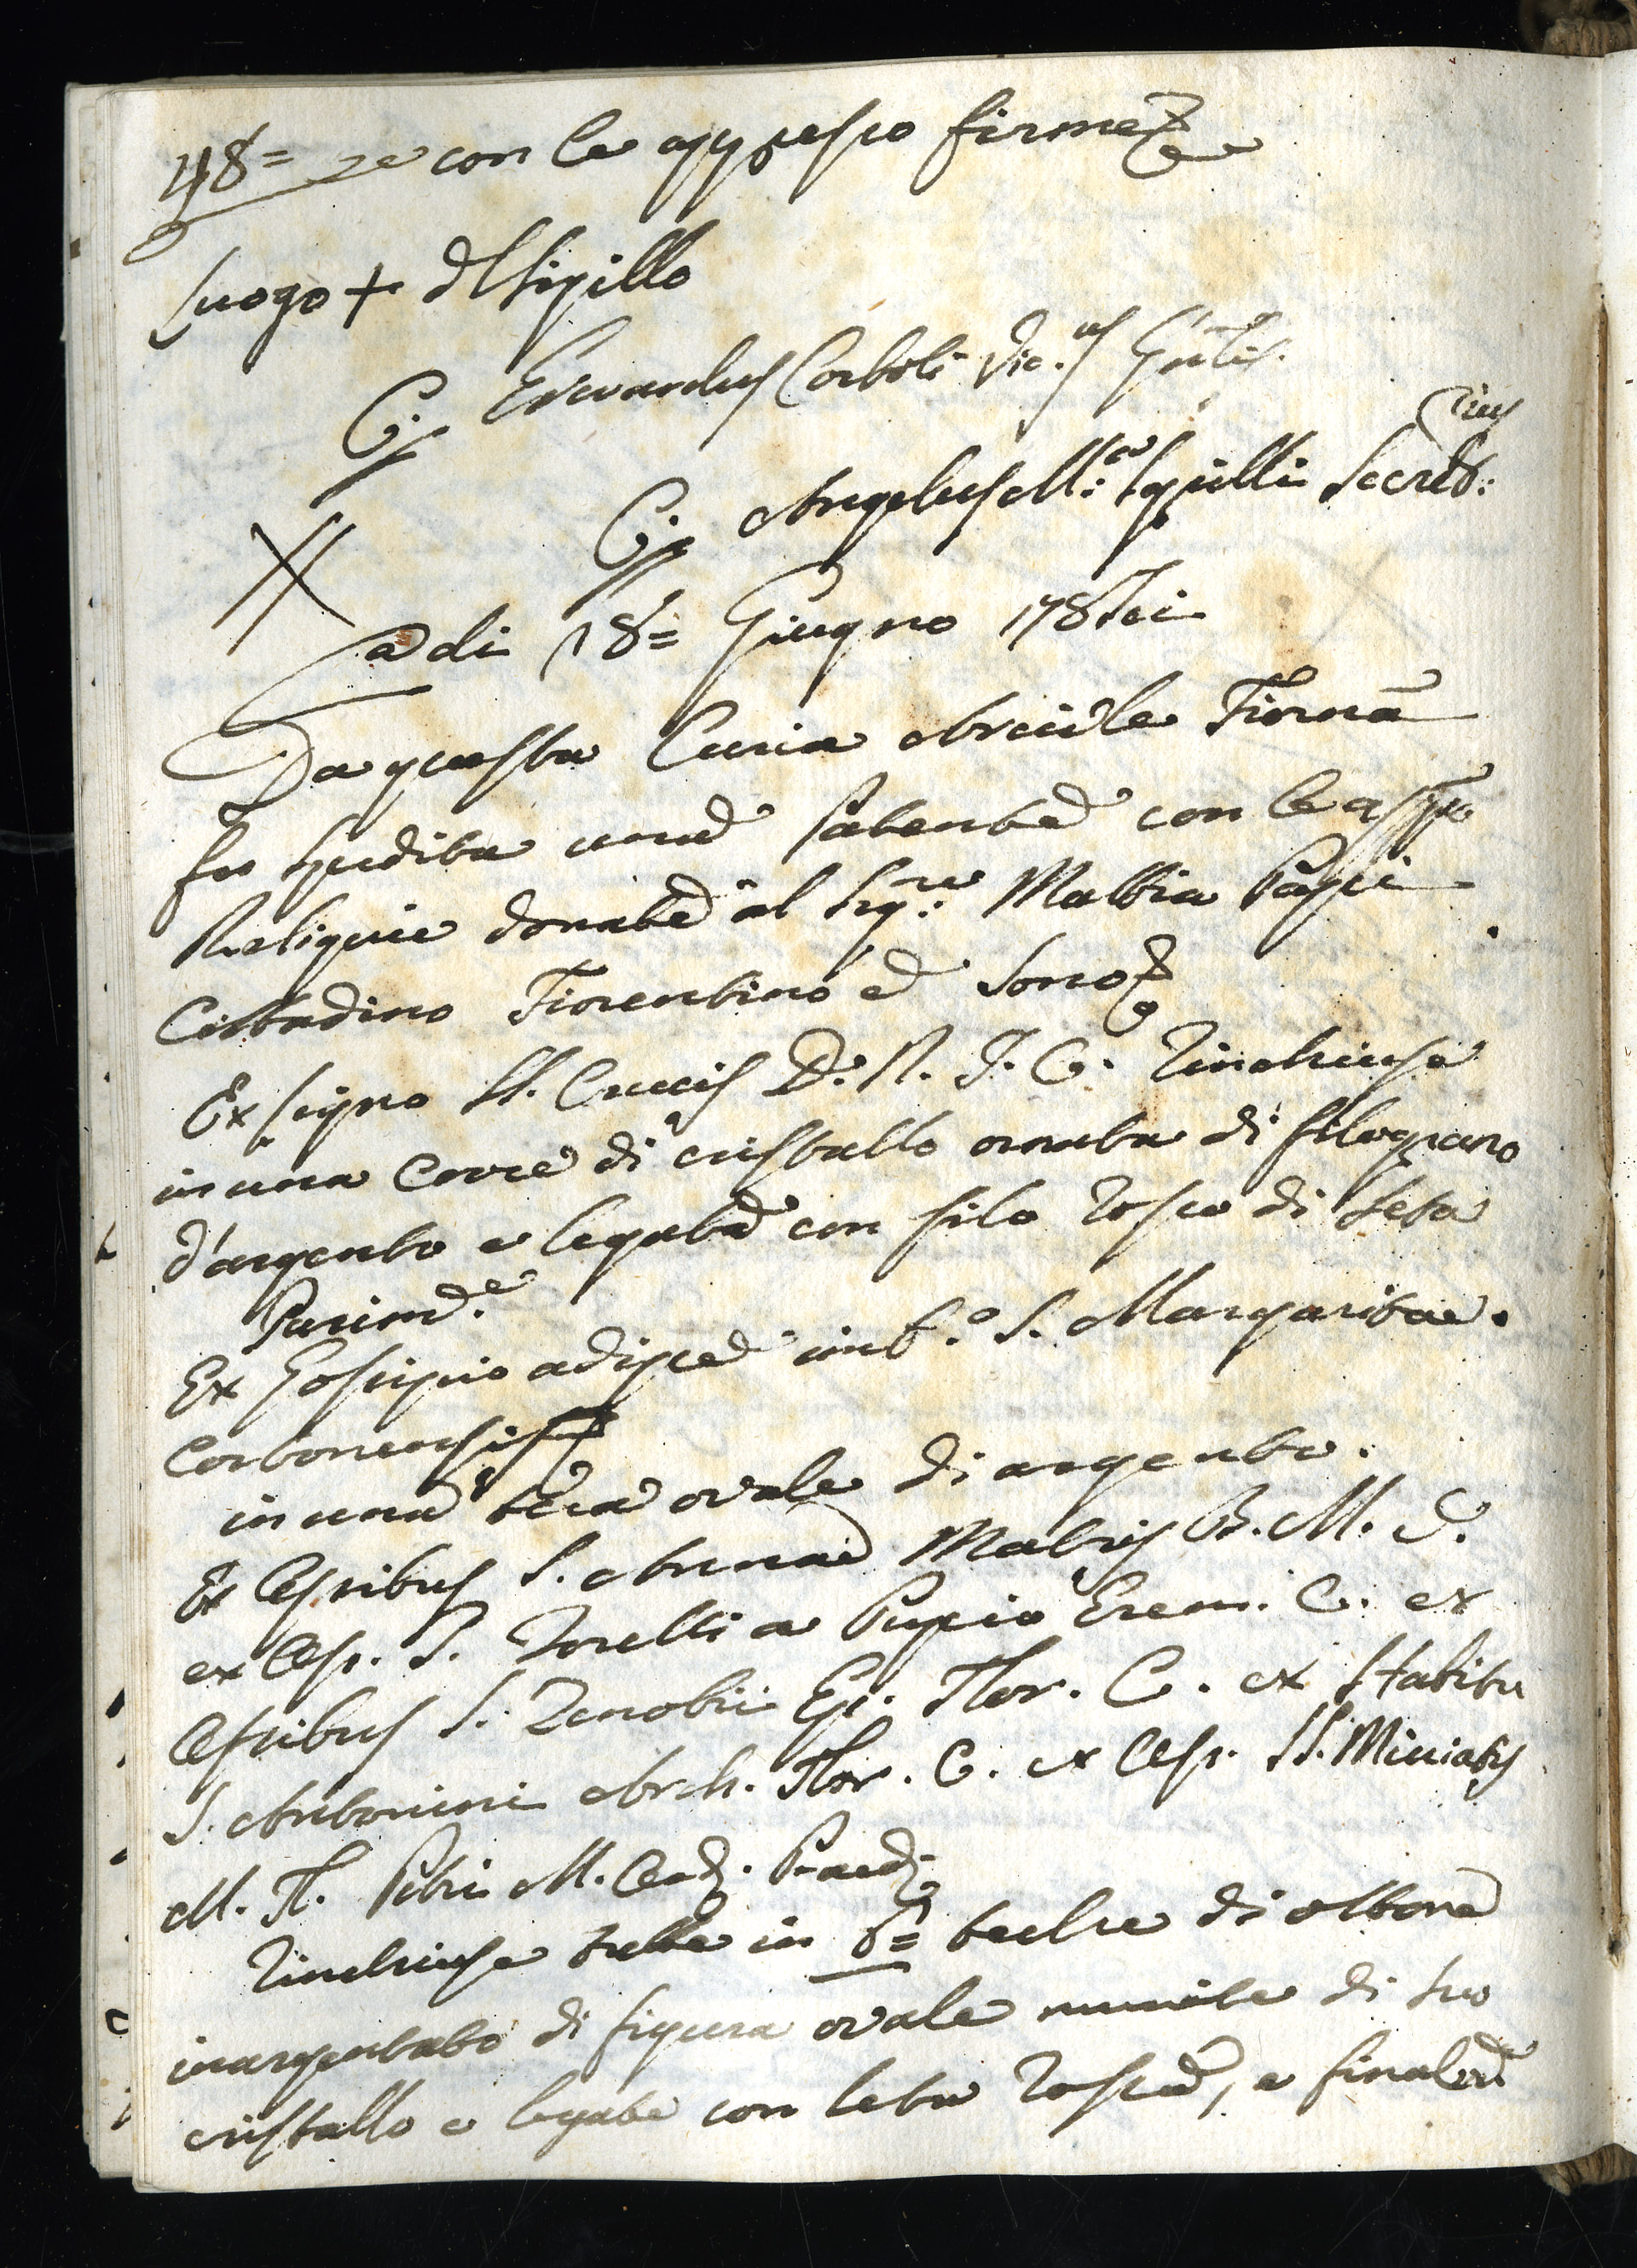 48= ze con le appresso firme
Luogo + del Sigillo
C. Everardus Corboli Vic.us Gnlis.
C. Angelus M.a Squilli Secret:rius
a di 18= Giugno 178sei
Da questa Curia Arcivle Fiornã
fu spedita una Patente con le appo
Reliquie donate al Sig.re Mattia Papi
Cittadino Fiorentino e sono
Ex signo SS. Crucis D. N. J. C. Rinchiusa
in una Croce di cristallo ornata di filograno
d'argento e legata con filo rosso di seta
Parim.e
Ex Gossipio adipe int.o S. Margaritae
Cortonensis
in una teca ovale di argento.
Ex Cineribus S. Annae Matris B. M. V.
ex S. Torelli a Puppio Erem. C. ex
S. Zenobii Ep. Flor. C. ex Habitu
S. Antonini Arch. Flor. C. ex SS. Miniatis
M. Fl. Petri M. Card.
Rinchiuse tutte in 6= teche di ottone
inargentato di figura ovale munite di suo
cristallo e legate con seta rossa, e finalme